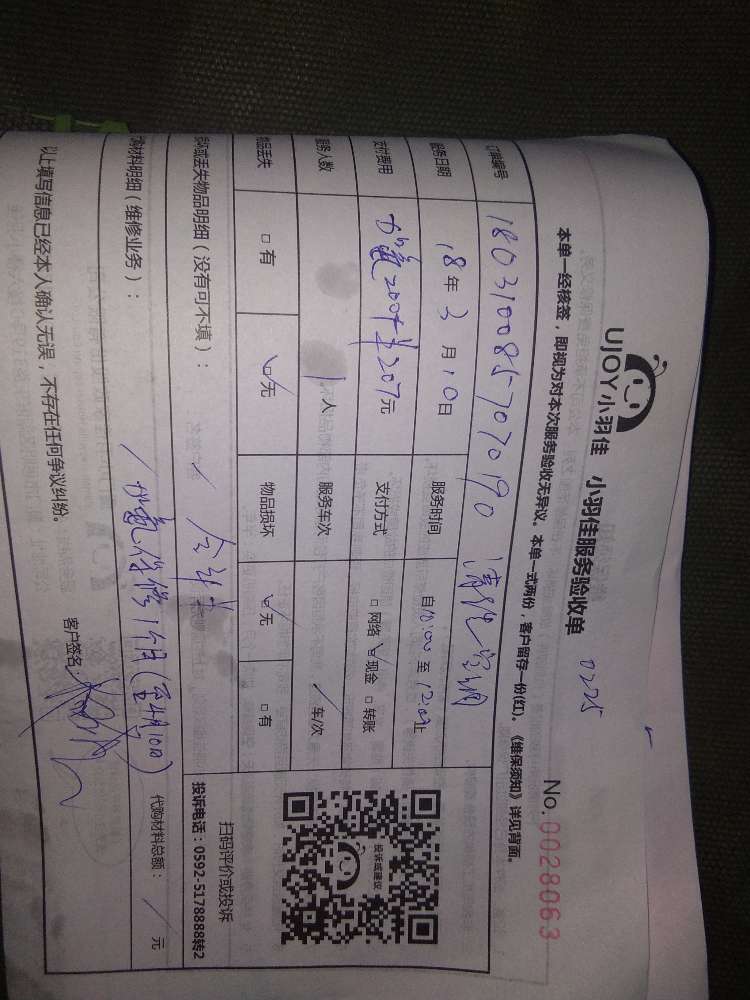 UJOY小羽佳 小羽佳服务验收单 0225
No.0028063
本单一经核签，即视为对本次服务验收无异议。本单一式两份，客户留存一份(红)。《维保须知》详见背面。
订单编号 180310085707090 清洗空调
服务日期 18年3月10日 服务时间 自10:00至12:00止
支付费用 加氟200+ 207元 支付方式 □网络 ☑现金 □转账
服务人数 1人 服务车次 / 车/次
物品丢失 □有 ☑无 物品损坏 ☑无 □有
损坏或丢失物品明细（没有可不填）： /
代购材料明细（维修业务）： / 加氟保修1个月(至4月10日) 代购材料总额： / 元
以上填写信息已经本人确认无误，不存在任何争议纠纷。 客户签名：
投诉或建议
扫码评价或投诉
投诉电话：0592-5178888转2